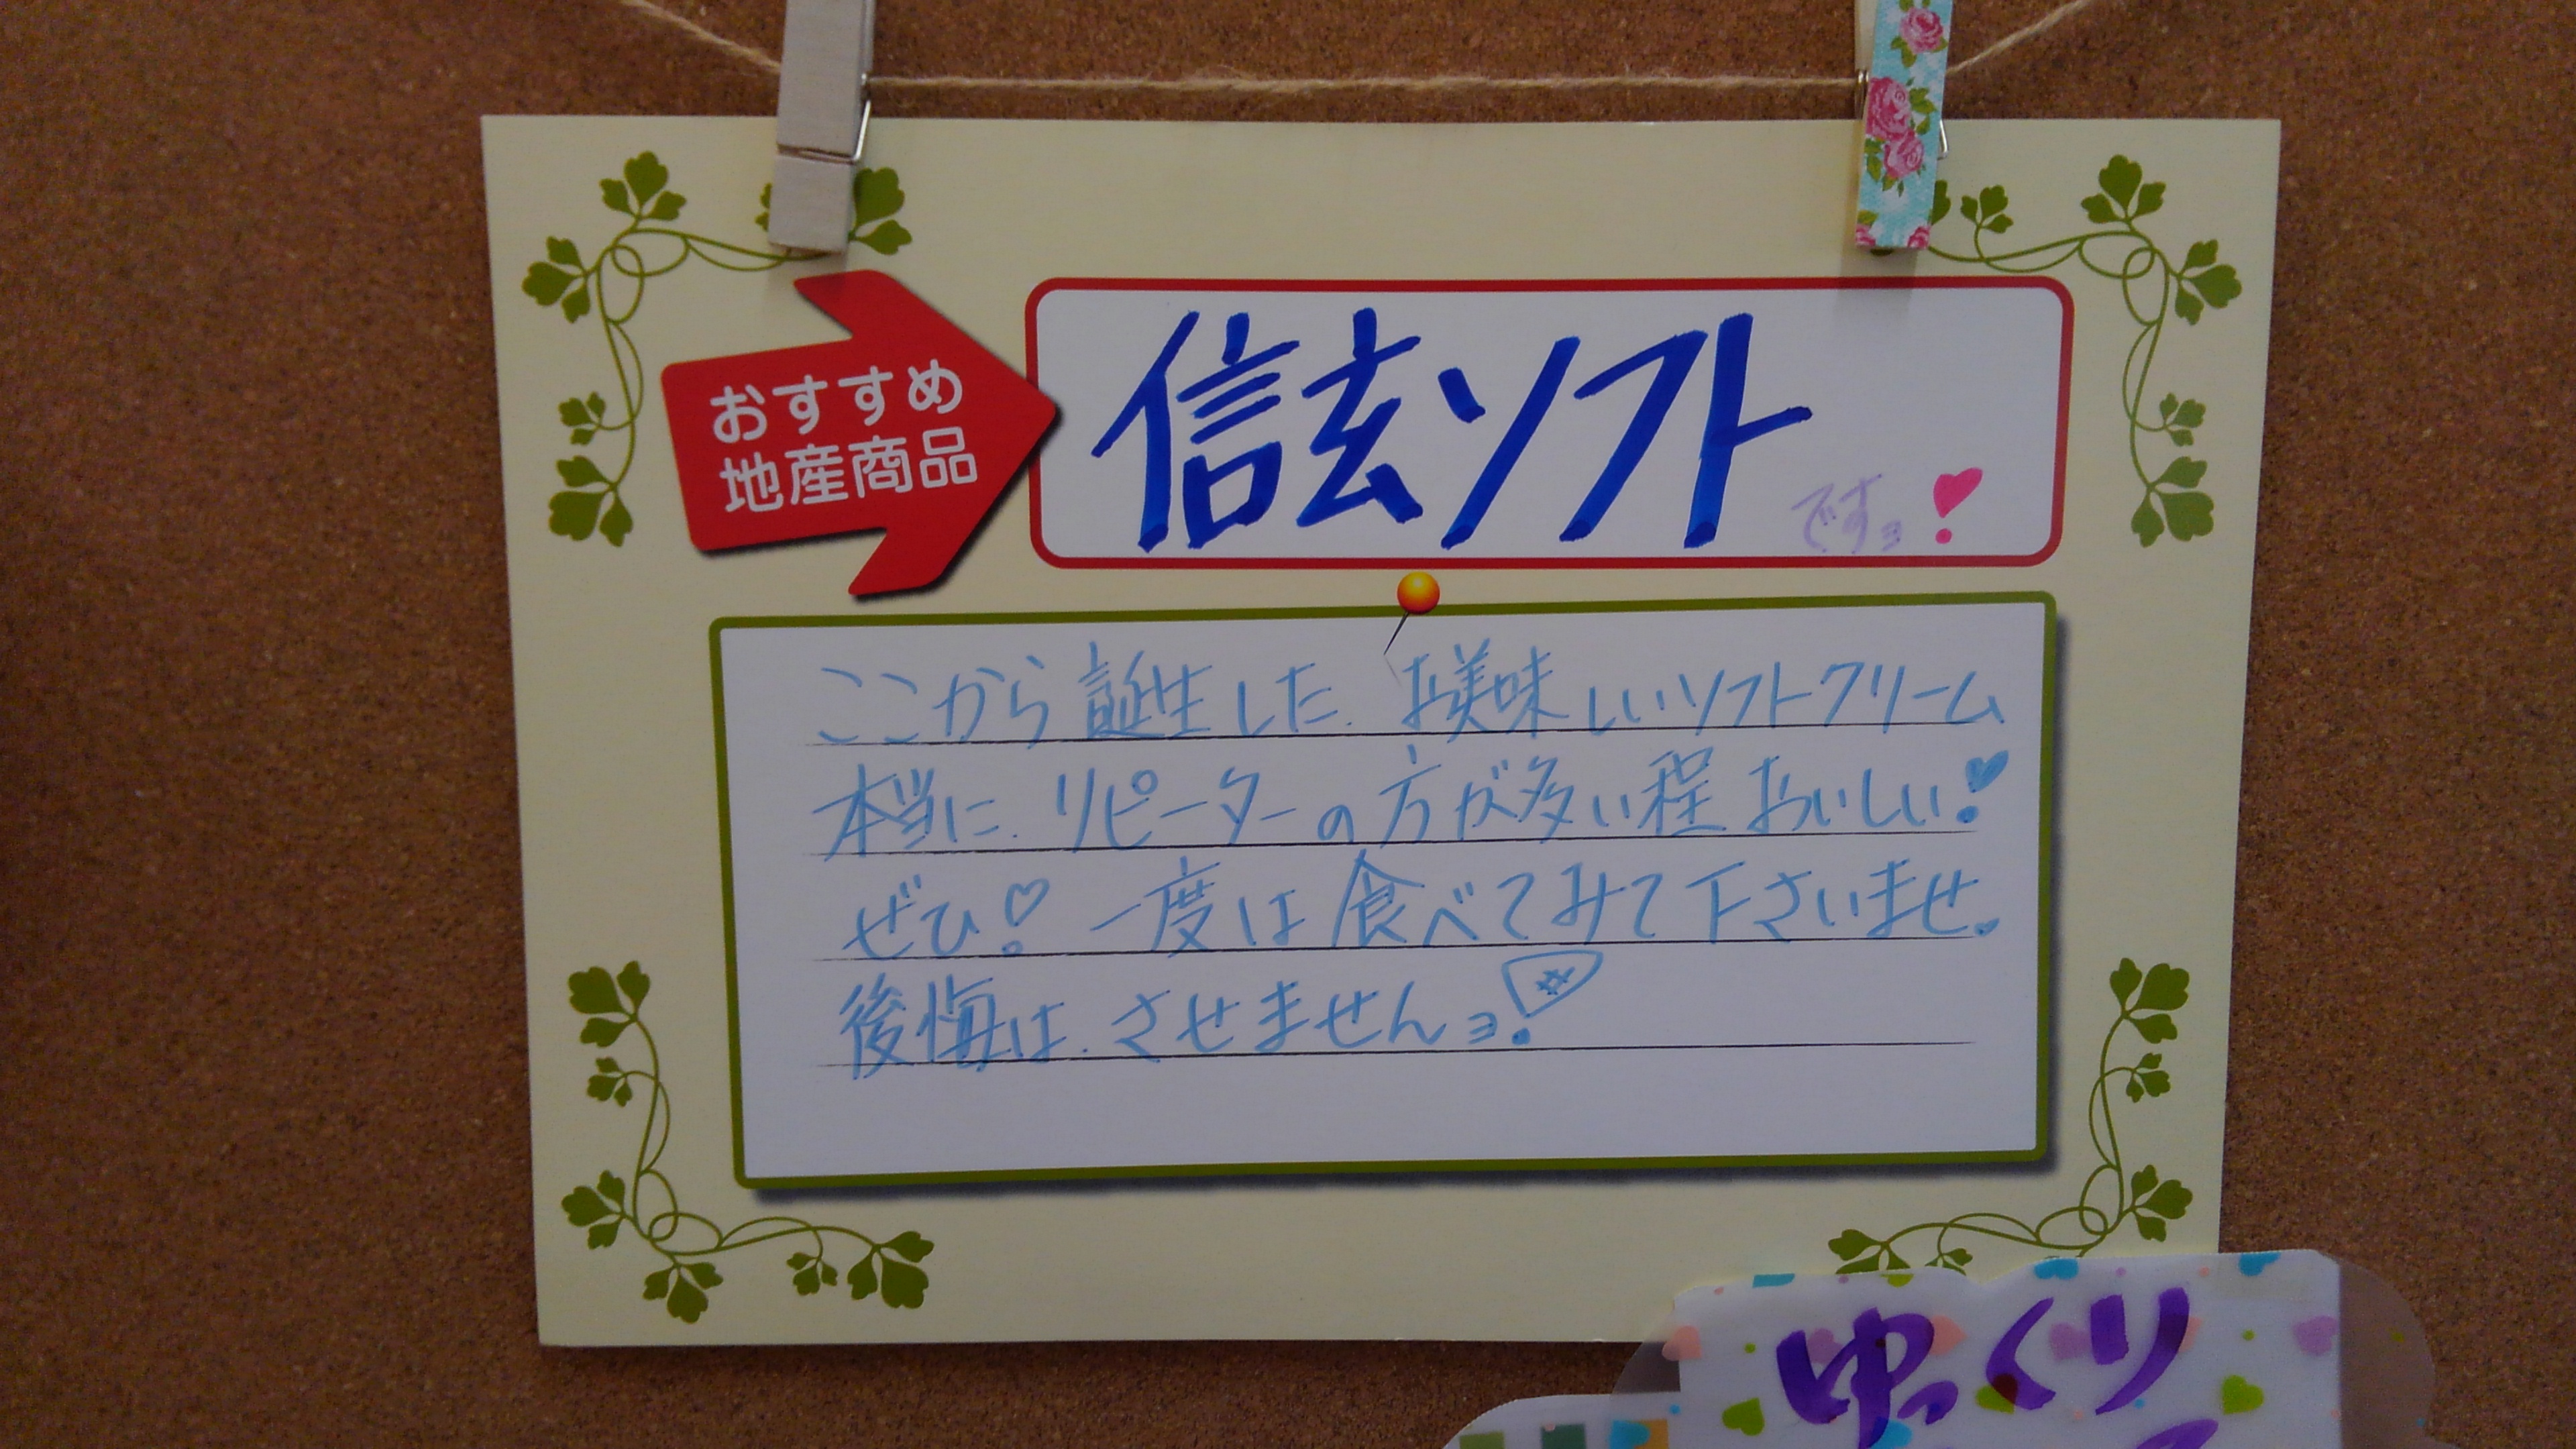 おすすめ
地産商品
信玄ソフト
ですョ!
ここから誕生した.お美味しいソフトクリーム
本当に.リピーターの方が多い程おいしい!
ぜひ!一度は食べてみて下さいませ
後悔は.させませんョ!
ゆっくり